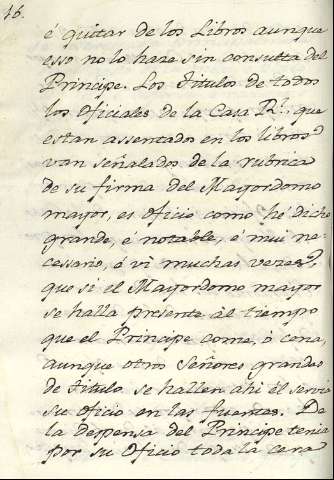 46.
é quitar de los Libros aunque
esso no lo haze sin consulta del
Principe. Los Titulos de todos
los Oficiales de la Casa Rl., que
estan assentados en los libros
van señalados de la rubrica
de su firma del Mayordomo
mayor, es oficio como hé dicho
grande, é notable, é mui ne-
cessario, é vi muchas vezes,
que si el Mayordomo mayor
se halla presente al tiempo
que el Principe come, ó cena,
aunque otros Señores grandes
de titulo se hallen ahi él servia
su oficio en las fuentes. De
la Despensa del Principe tenia
por su Oficio toda la cera